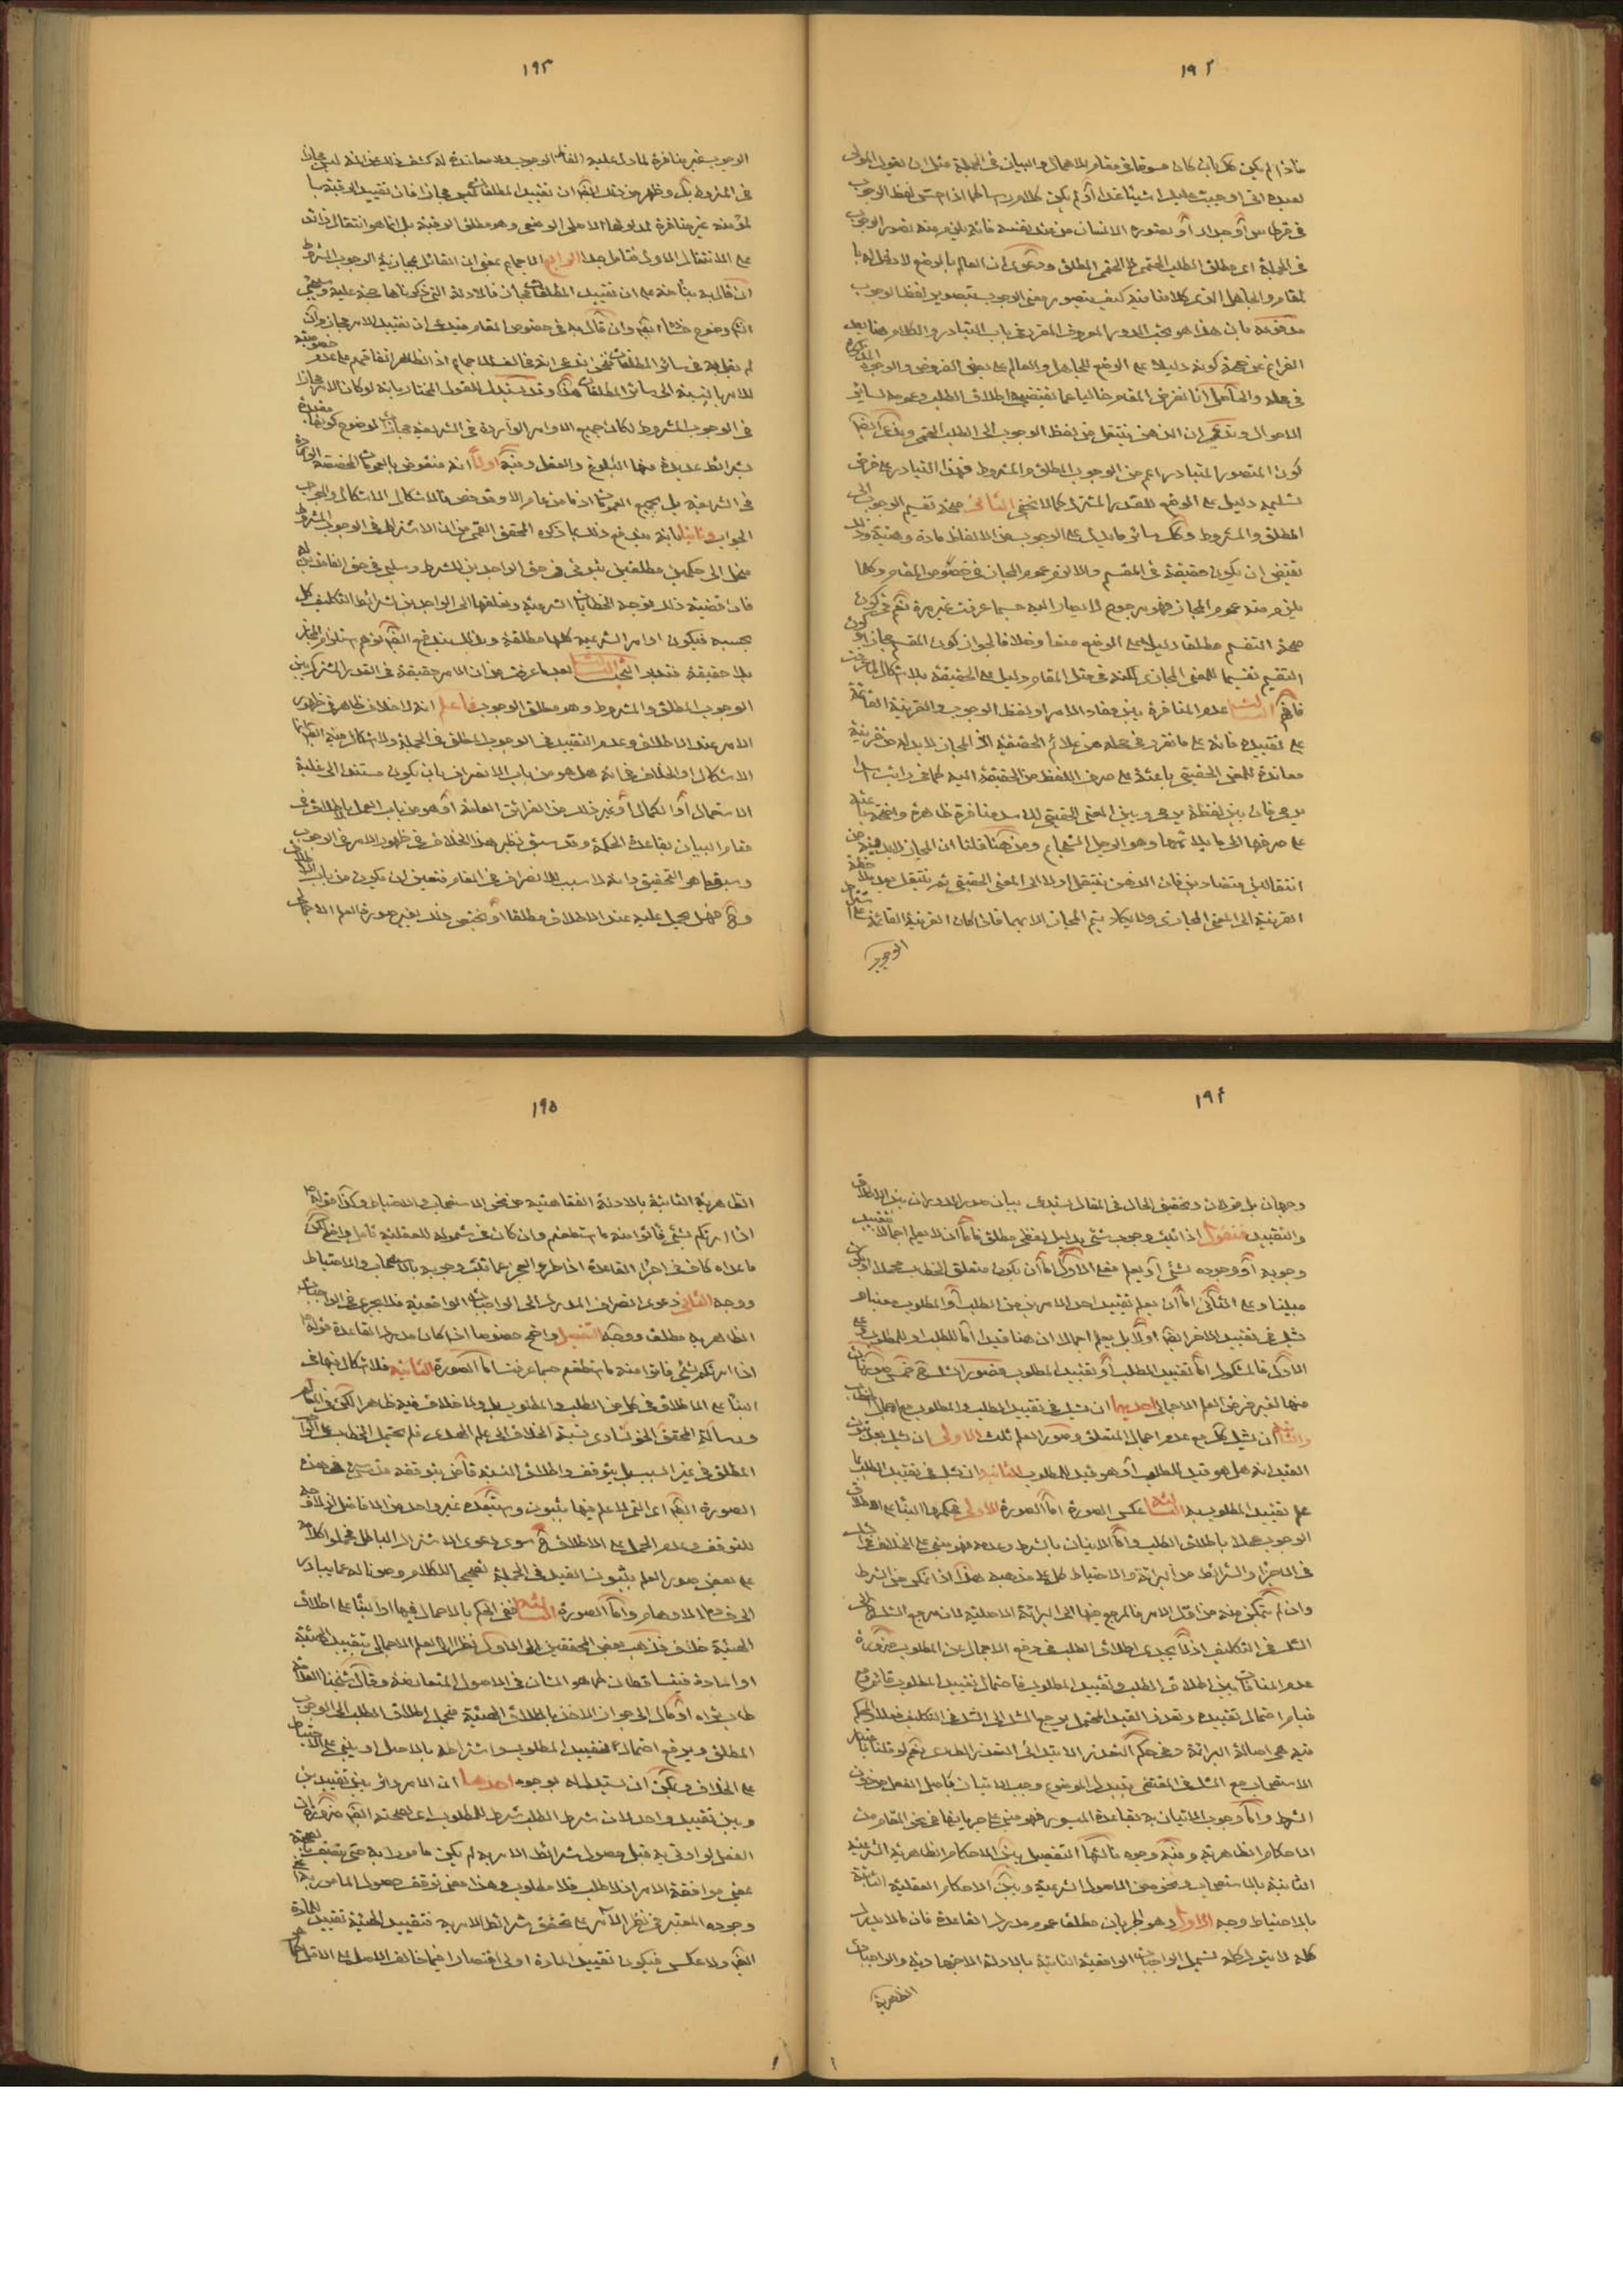 ١٩٢
فاذا لم يكن كك بان كان مسوقا في مقام الاهمال والبيان في الجملة مثل ان يقول المولى
لعبده اني اوجبت عليك شيئا غدا او لم يكن كلام رأسا كما اذا لفظ الوجوب
في قرطاس او جدار او تصوره الانسان من عند نفسه فانه يلزم منه تصور الوجوب
في الجملة اى مطلق الطلب الحتمى لا الحتمى المطلق ودعوى ان العالم بالوضع لا دخل له
المقام والجاهل الذى كلامنا فيه كيف يتصور معنى الوجوب بتصوير لفظ الوجوب
مدفوعة بان هذا هو بحث الدور المعروف المقرر في باب التبادر والكلام هنا بعد
الفراغ عن جهة كونه دليلا على الوضع للجاهل والعالم على بعض الفروض والوجوه المذكورة
في محله والحاصل انا نفرض المقام خاليا عما يقتضيه اطلاق الطلب وعمومه لسائر
الاحوال وندعى ان الذهن ينتقل من لفظ الوجوب الى الطلب الحتمى وندعى ايضا
كون المتصور المتبادر اعم من الوجوب المطلق والمشروط فهذا التبادر على فرض
تسليمه دليل على الوضع للقدر المشترك كما لا يخفى الثاني صحة تقسيم الوجوب الى
المطلق والمشروط وكك سائر ما يدل على الوجوب من الالفاظ مادة وهيئة وذلك
تقتضى ان يكون حقيقة في المقسم والا لزم عموم المجاز في خصوص المقام وكلما
يلزم منه عموم المجاز فهو مرجوع لا يصار اليه حسبما عرفت غير مرة نعم في كون
صحة التقسيم مطلقا دليلا على الوضع منعا وخلافا لجواز كون المقسم مجازا وكون
التقسيم تقسيما للمعنى المجازى لكنه في مثل المقام دليل على الحقيقة بلا اشكال لما عرفت
فافهم الثالث عدم المنافرة بين مفاد الامر او لفظ الوجوب والقرينة القائمة
على تقييده فانه على ما تقرر في محله من علائم الحقيقة اذ المجاز لا بد له من قرينة
معاندة للمعنى الحقيقى باعثة على صرف اللفظ من الحقيقة اليه كما في رايت اسدا
يرمى فان بين لفظة يرمى وبين المعنى الحقيقى للاسد منافرة ظاهرة واضحة باعثة
على صرفها الى ما يلائمها وهو الرجل الشجاع ومن هنا قلنا ان المجاز لا بد فيه من
انتقالين متضادين فان الذهن ينتقل اولا الى المعنى الحقيقى ثم ينتقل بعد ملاحظة
القرينة الى المعنى المجازى ولا يكاد يتم المجاز الا بهما فاذا كان القرينة القائمة على اشتراط
الوجوب
١٩٣
الوجوب غير منافرة لما دل عليه الفاظ الوجوب ولا معاندة له كشف ذلك عن انه ليس مجازا
في المشروط بل وظهر من ذلك ايضا ان تقييد المطلقات ليس مجازا فان تقييد الرقبة بما
لمؤمنة غير منافرة لمدلولها الاصلى الوضعى وهو مطلق الرقبة بل انما هو انتقال زائد
على الانتقال الاول فتامل جدا الرابع الاجماع بمعنى ان القائل بمجازية الوجوب المشروط
ان قال به بناء منه على ان تقييد المطلقات مجاز فالادلة التى ذكرناها حجة عليه وسيجئ
ايضا وضوح خطائه ايضا وان قال به في خصوص المقام فيدعى ان تقييد الامر مجاز وان
لم يقل به في سائر المطلقات فنحن ندعى انه مخالف للاجماع اذ الظاهر اتفاقهم على عدم خصوصية
للامر بالنسبة الى سائر المطلقات هذا وقد يستدل للقول المختار بانه لو كان الامر مجازا
في الوجوب المشروط لكان جميع الاوامر الواردة في الشريعة مجازات لوضوح كونها مقيدة
بشرائط عديدة منها البلوغ والعقل وفيه اولا انه منقوض بالعمومات المخصصة الواردة
في الشريعة بل بجميع العمومات اذ ما من عام الا وقد خص فالاشكال الاشكال والجواب
الجواب وثانيا بانه يندفع ذلك بما ذكره المحقق القمى من ان الاشتراط في الوجوب المشروط
ينحل الى حكمين مطلقين ثبوتى في حق الواجدين للشرط وسلبى في حق الفاقدين له
فان قضية ذلك توجه الخطابات الشرعية وتعلقها الى الواجدين لشرائط التكليف كل
بحسبه فيكون اوامر الشرعية كلها مطلقة وبذلك يندفع ايضا توهم استلزام المجاز
بلا حقيقة فتدبر المبحث الثالث بعد ما عرفت من ان الامر حقيقة في القدر المشترك بين
الوجوب المطلق والمشروط وهو مطلق الوجوب فاعلم انه لا خلاف ظاهر في ظهور
الامر عند الاطلاق وعدم التقييد في الوجوب المطلق في الجملة ولا اشكال فيه ايضا انما
الاشكال او الخلاف في انه هل هو من باب الانصراف بان يكون مستندا الى غلبة
الاستعمال او الكمال او غير ذلك من القرائن العامة او هو من باب العمل باطلاق في
مقام البيان بقاعدة الحكمة وقد سبق نظير هذا الخلاف في ظهور الامر في الوجوب
وسبق ما هو التحقيق وانه لا سبب للانصراف في المقام فتعين ان يكون من باب الاطلاق
وح فهل يحمل عليه عند الاطلاق مطلقا او يختص ذلك بغير صورة العلم الاجمالى
١٩٤
وجهان بل قولان وتحقيق الحال في المقال يستدعى بيان صور الدوران بين الاطلاق
والتقييد فنقول اذا ثبت وجوب شئ بدليل لفظى مطلق فاما ان لا يعلم اجمالا تقييد
وجوبه او وجوده بشئ او يعلم فعلى الاول اما ان يكون متعلق الخطاب مجملا او يكون
مبينا وعلى الثانى اما ان يعلم تقييد احد الامرين من الطلب او المطلوب معينا مع
شك في تقييد الاخر ايضا اولا بل يعلم اجمالا ان هنا قيدا اما للطلب او للمطلوب وعلى
الاول فالمشكوك اما تقييد الطلب او تقييد المطلوب فصور الشك ح خمس صورتان
منها لغير فرض العلم الاجمالى احديهما ان شك في تقييد الطلب والمطلوب مع اجمال الخطاب
والثانية ان شك كك مع عدم اجمال المتعلق وصور العلم ثلث الاولى ان شك بعد ثبوت
القيد انه هل هو قيد للطلب او هو قيد للمطلوب الثانية ان شك في تقييد الطلب بما
علم تقييد المطلوب به الثالثة عكس الصورة اما الصورة الاولى فحكمها البناء على اطلاق
الوجوب عملا باطلاق الطلب واما الاتيان بالشرط وعدمه فهو مبنى على الخلاف في الشك
في الاجزاء والشرائط من البرائة والاحتياط كل على مذهبه هذا اذا تمكن من الشرط
وان لم يتمكن منه من اول الامر فالمرجع فيها الى البرائة الاصلية لان مرجع الشك الى
الشك في التكليف اذ لا يجدى اطلاق الطلب في رفع الاجمال عن المطلوب ضرورة
عدم المنافات بين اطلاق الطلب وتقييد المطلوب فاحتمال تقييد المطلوب قائم ومع
قيام احتمال تقييده وتعذر القيد المحتمل يرجع الشك الى الشك في التكليف فعلا والحكم
فيه هى اصالة البرائة وفي حكم التعذر الابتدائى التعذر الطارى نعم لو قلنا باعتبار
الاستصحاب مع الشك في المقتضى بتبدل الموضوع وجب الاتيان باصل الفعل من دون
الشرط واما وجوب الاتيان به بقاعدة الميسور فهو مبنى على جريانها في نحو المقام من
الاحكام الظاهرية وفيه وجوه ثالثها التفصيل بين الاحكام الظاهرية الشرعية
الثابتة بالاستصحاب ونحوه من الاصول الشرعية وبين الاحكام العقلية الثابتة
بالاحتياط وجه الاول وهو الجريان مطلقا عموم مدرك القاعدة فان مالا يدرك
كله لا يترك كله تشمل الواجبات الواقعية الثابتة بالادلة الاجتهادية والواجبات
الظاهرية
١٩٥
الظاهرية الثابتة بالادلة الفقاهتية من نحو الاستصحاب والاحتياط وكذا قوله ص
اذا امرتكم بشئ فأتوا منه ما استطعتم وان كان في شموله للعقلية تأمل واضح لكن
ما عداه كاف في اجراء القاعدة اذا طرء العجز عما ثبت وجوبه بالاستصحاب والاحتياط
ووجه الثانى دعوى انصراف المدرك الى الواجبات الواقعية فلا يجرى في الواجبات
الظاهرية مطلقا ووجه التفصيل واضح خصوصا اذا كان مدرك القاعدة قوله ص
اذا امرتكم بشئ فاتوا منه ما استطعتم حسبما عرفت اما الصورة الثانية فلا اشكال فيها في
البناء على الاطلاق في كل من الطلب والمطلوب بل ولا خلاف فيه ظاهرا لكن في المقام
رسالة المحقق الخونسارى نسبة الخلاف الى علم الهدى فلم يحمل الخطاب على الوجوب
المطلق في غير السبب بل يتوقف واطلاق النسبة قاض بتوقفه قدس سره في هذه
الصورة ايضا اى التى لا علم فيها بثبوت واستبعده غير واحد من الافاضل اذ لا وجه
للتوقف وعدم الحمل على الاطلاق ح سوى دعوى الاشتراك الباطل فحملوا كلامه
على بعض صور العلم بثبوت القيد في الجملة تصحيحا للكلام وصونا له عما يبادر
الى خدشة الاوهام واما الصورة الثالثة ففى الحكم بالاجمال فيها او البناء على اطلاق
الهيئة خلاف فذهب بعض المحققين الى الاول نظرا الى العلم الاجمالى بتقييد الهيئة
او المادة فيتساقطان كما هو الشان في الاصول المتعارضة وقال شيخنا العلامة
طاب ثراه اولا الى جواز الاخذ باطلاق الهيئة فيحمل اطلاق الطلب الى الوجوب
المطلق ويرفع احتمال تقييد المطلوب واشتراطه بالاصل او يبنى على الاحتياط
على الخلاف ويمكن ان يستدل له بوجوه احدها ان الامر دائر بين تقييدين
وبين تقييد واحد لان شرط الطلب شرط للمطلوب اى لصحته ايضا ضرورة ان
الفعل لو اوتى به قبل حصول شرائط الامر به لم يكن مامورا به حتى يتصف بالصحة
بمعنى موافقة الامر اذ لا طلب فلا مطلوب وهذا معنى توقف حصول المأمور به على
وجوده المعتبر في نظر الآمر على تحقق شرائط الامر به فتقييد الهيئة تقييد للمادة
ايضا ولا عكس فيكون تقييد المادة اولى اقتصارا فيما خالف الاصل على الاقل كما هو